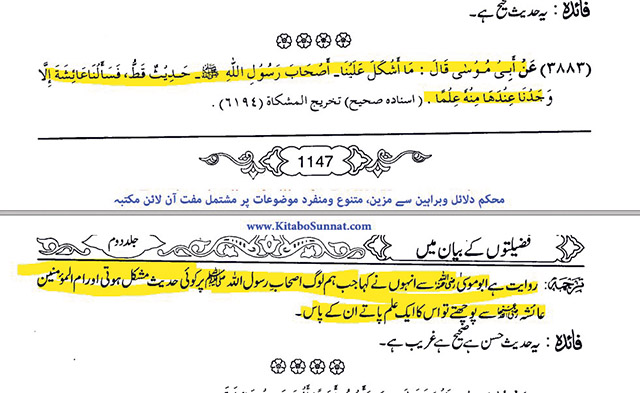 فائدہ : یہ حدیث صحیح ہے۔
(۳۸۸۳) عَنْ أَبِیْ مُوْسٰی قَالَ : مَا أَشْكَلَ عَلَيْنَا۔ أَصْحَابَ رَسُوْلِ اللّٰهِ ﷺ۔ حَدِيْثٌ قَطُّ، فَسَأَلْنَا عَائِشَةَ إِلَّا
وَجَدْنَا عِنْدَهَا مِنْهُ عِلْمًا . (اسناده صحيح) تخريج المشكاة (٦١٩٤) .
1147
محکم دلائل وبراہین سے مزین، متنوع ومنفرد موضوعات پر مشتمل مفت آن لائن مکتبہ
www.KitaboSunnat.com
فضیلتوں کے بیان میں
جلد دوم
ترجمہ: روایت ہے ابوموسیٰ رضی اللہ عنہ سے انہوں نے کہا جب ہم لوگ اصحاب رسول اللہ ﷺ پر کوئی حدیث مشکل ہوتی اور ام المؤمنین
عائشہ رضی اللہ عنہا سے پوچھتے تو اس کا ایک علم پاتے ان کے پاس۔
فائدہ : یہ حدیث حسن ہے صحیح ہے غریب ہے۔